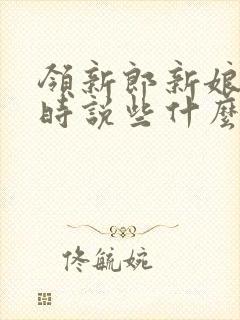 領新郎新娘
時說些什麼
佟毓婉